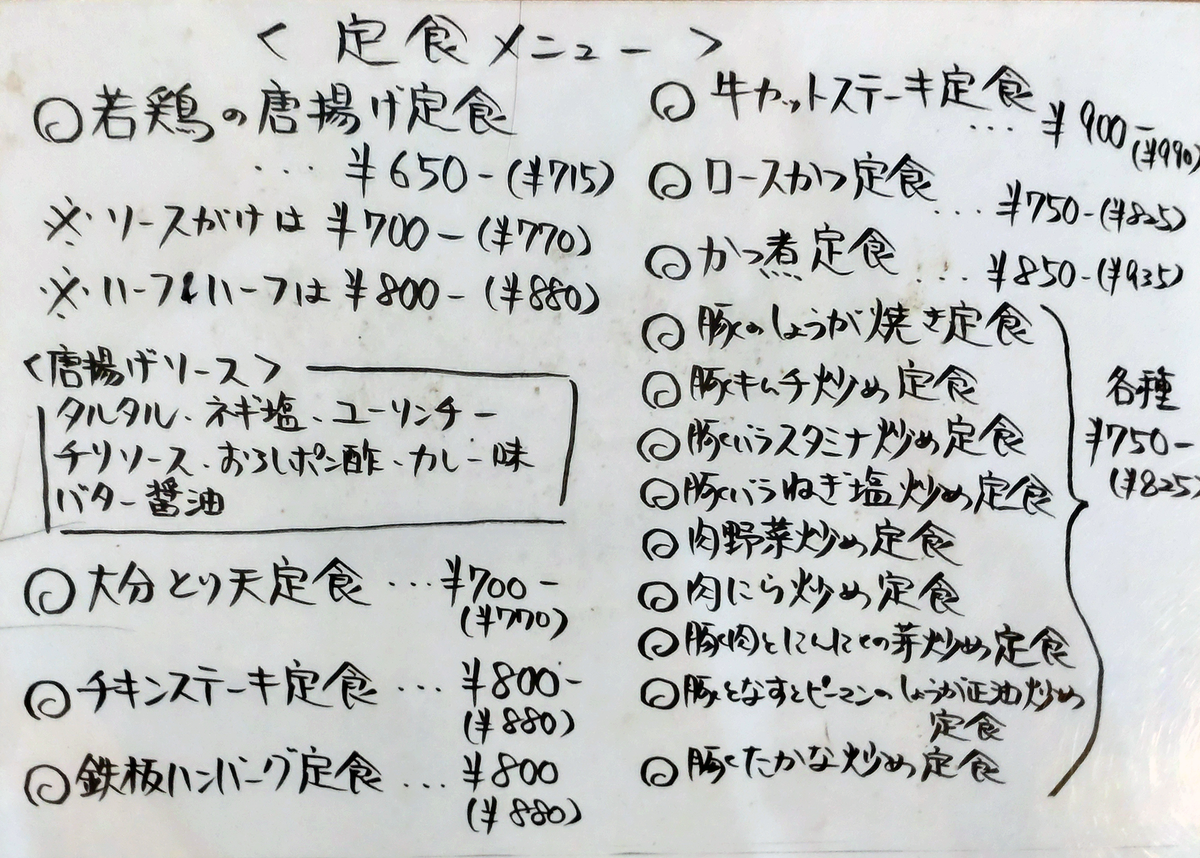 < 定食メニュー >
◎若鶏の唐揚げ定食
... ¥650-(¥715)
※ソースがけは ¥700-(¥770)
※ハーフ&ハーフは ¥800-(¥880)
<唐揚げソース>
タルタル、ネギ塩、ユーリンチー
チリソース、おろしポン酢、カレー味
バター醤油
◎大分とり天定食 ... ¥700-
(¥770)
◎チキンステーキ定食 ... ¥800-
(¥880)
◎鉄板ハンバーグ定食 ... ¥800
(¥880)
◎牛カットステーキ定食
... ¥900-
(¥990)
◎ロースかつ定食
... ¥750-(¥825)
◎かつ煮定食
... ¥850-(¥935)
◎豚のしょうが焼き定食
◎豚キムチ炒め定食
◎豚バラスタミナ炒め定食
◎豚バラねぎ塩炒め定食
◎肉野菜炒め定食
◎肉にら炒め定食
◎豚肉とにんにくの芽炒め定食
◎豚となすとピーマンのしょうが正油炒め
定食
◎豚とたかな炒め定食
各種
¥750-
(¥825)